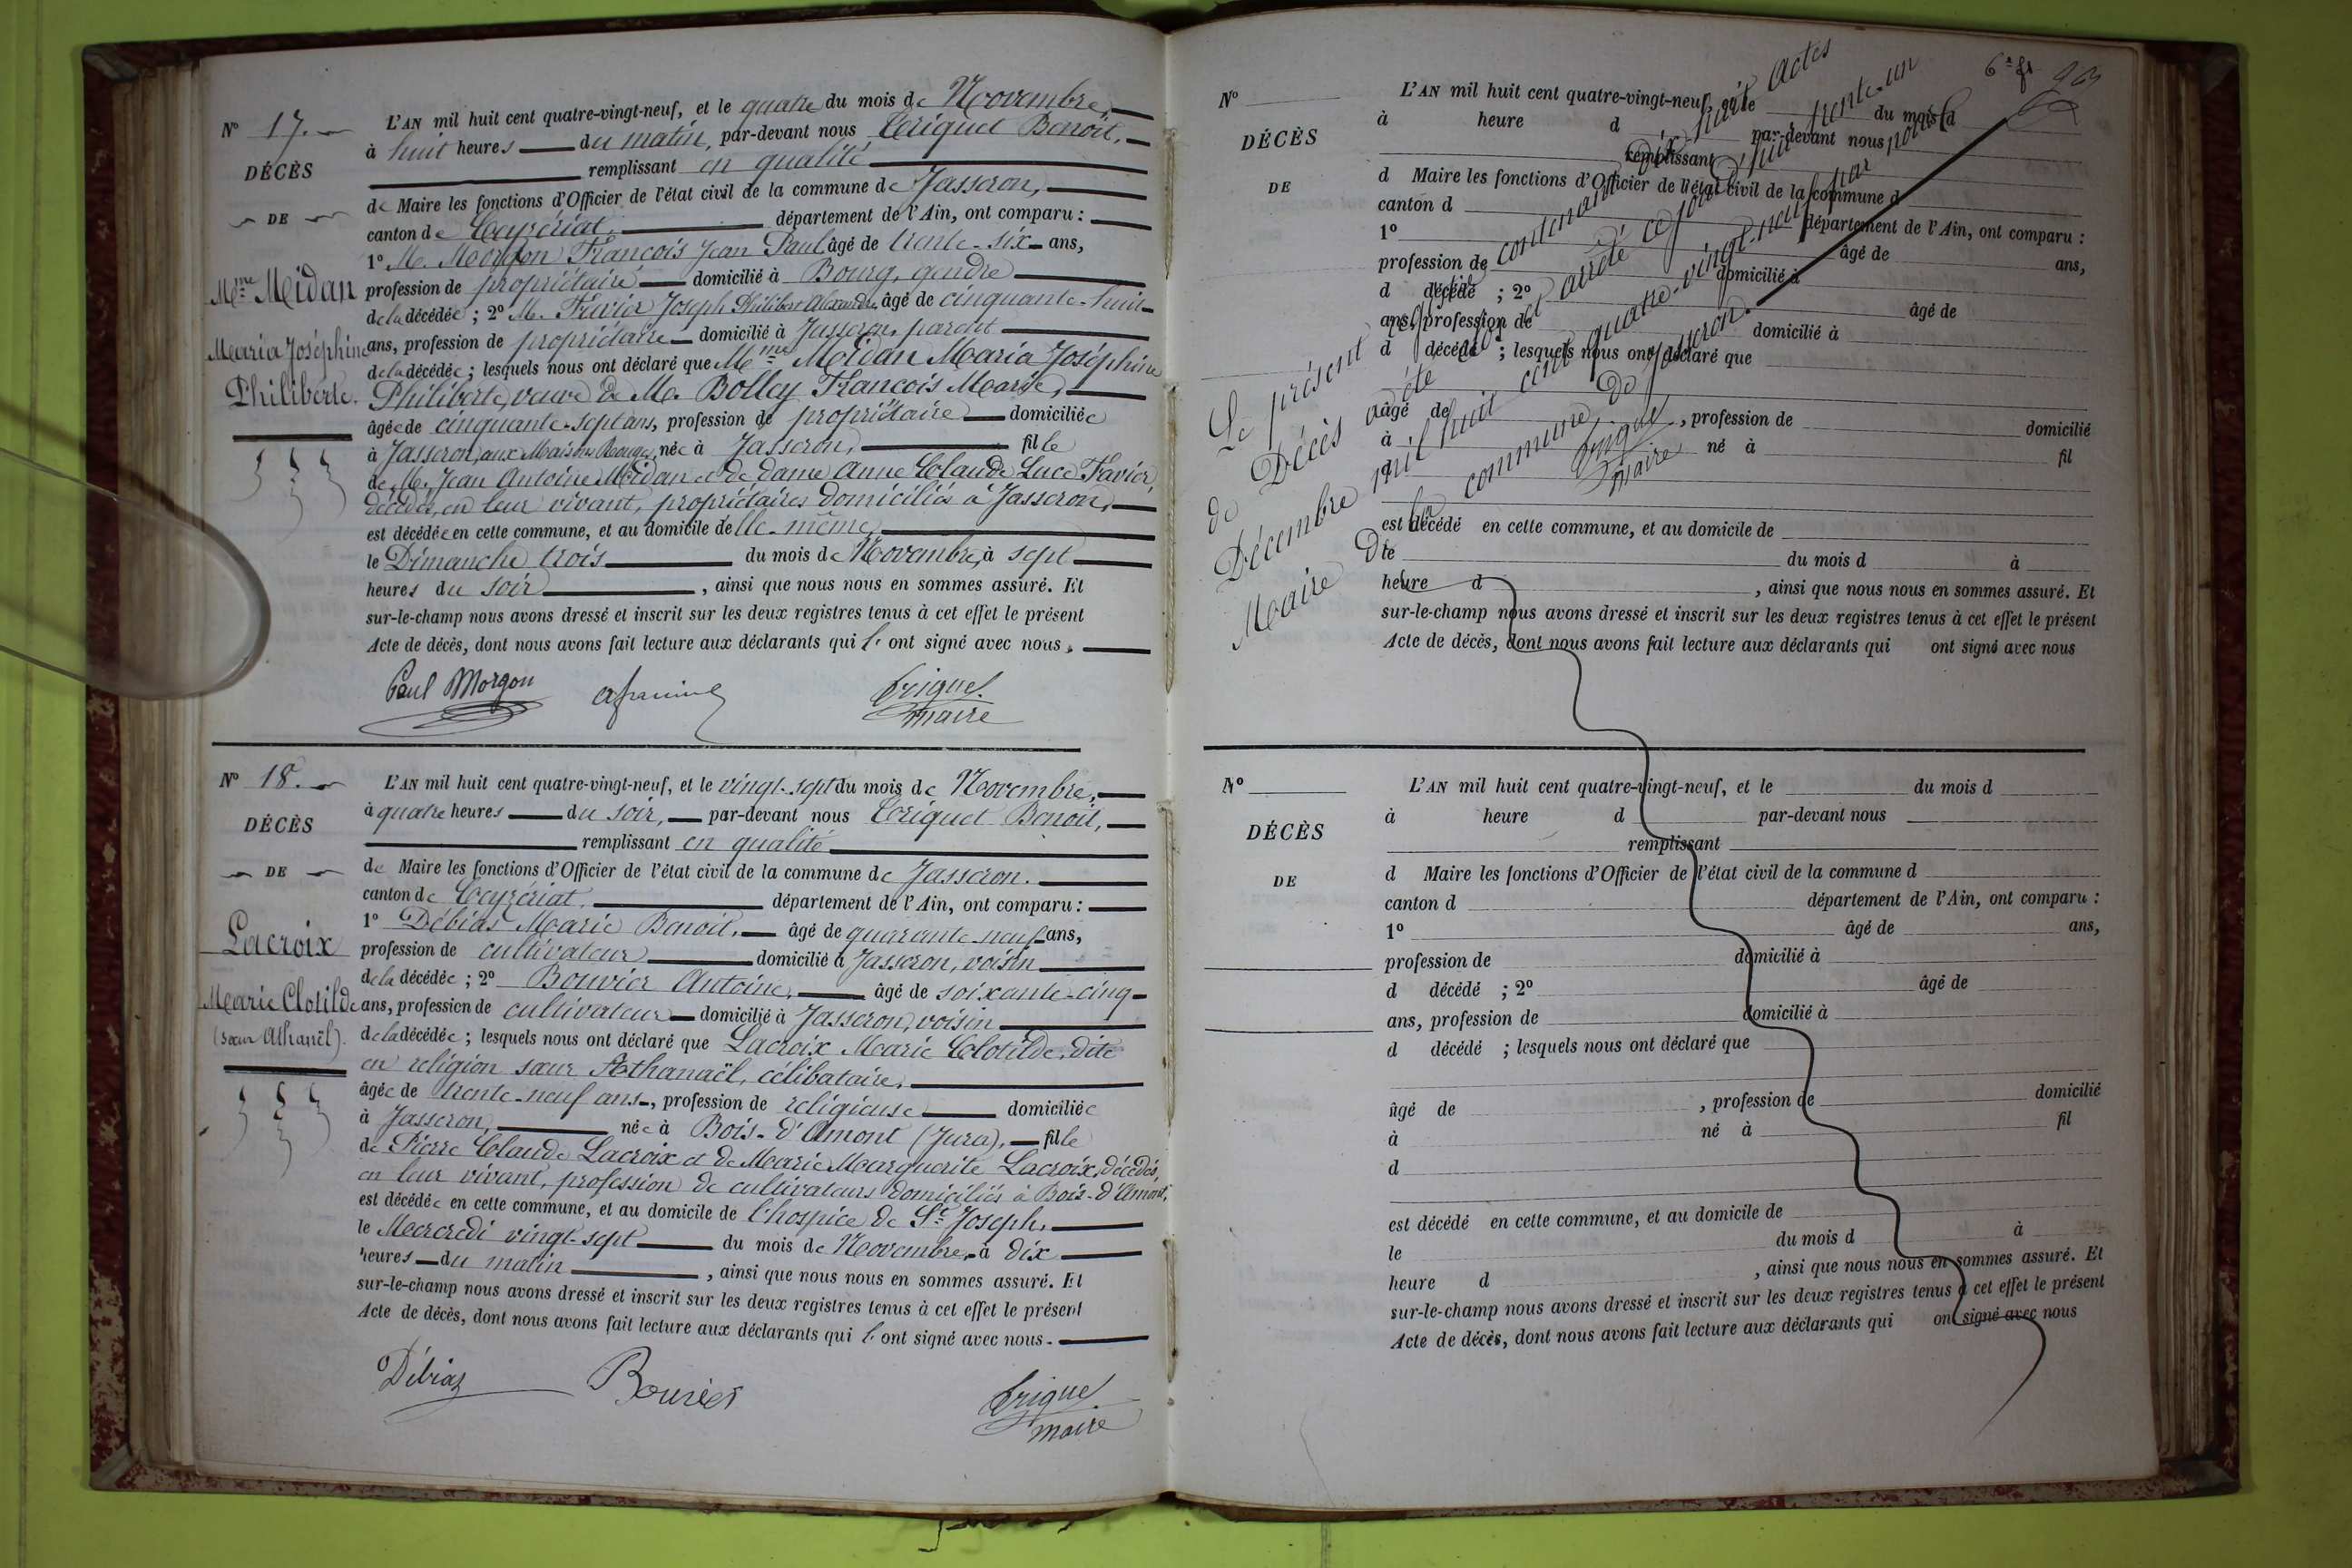 N° 17.
DÉCÈS
DE
Mme Midan
Maria Joséphine
Philiberte.
L'AN mil huit cent quatre-vingt-neuf, et le quatre du mois de Novembre,
à huit heures du matin, par-devant nous Cériquet Benoit,
remplissant en qualité
de Maire les fonctions d'Officier de l'état civil de la commune de Jasseron,
canton de Ceyzériat, département de l'Ain, ont comparu :
1° M. Morgon François Jean Paul âgé de trente-six ans,
profession de propriétaire domicilié à Bourg, gendre
de la décédée ; 2° M. Favier Joseph Philibert Alexandre âgé de cinquante-huit
ans, profession de propriétaire domicilié à Jasseron, parent
de la décédée ; lesquels nous ont déclaré que Mme Midan Maria Joséphine
Philiberte, veuve de M. Bolley François Marie,
âgée de cinquante-sept ans, profession de propriétaire domiciliée
à Jasseron, aux Maisons Rouges, née à Jasseron, fille
de M. Jean Antoine Midan et de dame Anne Claude Luce Favier,
décédés, en leur vivant, propriétaires domiciliés à Jasseron,
est décédée en cette commune, et au domicile de lle-même,
le Dimanche trois du mois de Novembre, à sept
heures du soir, ainsi que nous nous en sommes assuré. Et
sur-le-champ nous avons dressé et inscrit sur les deux registres tenus à cet effet le présent
Acte de décès, dont nous avons fait lecture aux déclarants qui l' ont signé avec nous.
Paul Morgon
maire
N° 18.
DÉCÈS
DE
Lacroix
Marie Clotilde
(sœur Athanaël).
L'AN mil huit cent quatre-vingt-neuf, et le vingt-sept du mois de Novembre,
à quatre heures du soir, par-devant nous Cériquet Benoit,
remplissant en qualité
de Maire les fonctions d'Officier de l'état civil de la commune de Jasseron.
canton de Ceyzériat, département de l'Ain, ont comparu :
1° Débias Marie Benoit, âgé de quarante-neuf ans,
profession de cultivateur domicilié à Jasseron, voisin
de la décédée ; 2° Bouvier Antoine, âgé de soixante-cinq
ans, profession de cultivateur domicilié à Jasseron, voisin
de la décédée ; lesquels nous ont déclaré que Lacroix Marie Clotilde, dite
en religion sœur Athanaël, célibataire,
âgée de trente-neuf ans, profession de religieuse domiciliée
à Jasseron, née à Bois-d'Amont (Jura), fille
de Pierre Claude Lacroix et de Marie Marguerite Lacroix, décédés,
en leur vivant, profession de cultivateurs domiciliés à Bois-d'Amont,
est décédée en cette commune, et au domicile de l'hospice de St Joseph,
le Mercredi vingt-sept du mois de Novembre, à dix
heures du matin, ainsi que nous nous en sommes assuré. Et
sur-le-champ nous avons dressé et inscrit sur les deux registres tenus à cet effet le présent
Acte de décès, dont nous avons fait lecture aux déclarants qui l' ont signé avec nous.
Débias
Bouvier
maire
Le présent registre contenant dix-huit actes
de Décès a été clos et arrêté ce jourd'hui trente-un
Décembre mil huit cent quatre-vingt-neuf par nous
Maire de la commune de Jasseron.
maire
N°
DÉCÈS
DE
L'AN mil huit cent quatre-vingt-neuf, et le du mois d
à heure d par-devant nous
remplissant
d Maire les fonctions d'Officier de l'état civil de la commune d
canton d département de l'Ain, ont comparu :
1° âgé de ans,
profession de domicilié à
d décédé ; 2° âgé de
ans, profession de domicilié à
d décédé ; lesquels nous ont déclaré que
âgé de , profession de domicilié
à né à fil
d
est décédé en cette commune, et au domicile de
le du mois d à
heure d , ainsi que nous nous en sommes assuré. Et
sur-le-champ nous avons dressé et inscrit sur les deux registres tenus à cet effet le présent
Acte de décès, dont nous avons fait lecture aux déclarants qui ont signé avec nous
N°
DÉCÈS
DE
L'AN mil huit cent quatre-vingt-neuf, et le du mois d
à heure d par-devant nous
remplissant
d Maire les fonctions d'Officier de l'état civil de la commune d
canton d département de l'Ain, ont comparu :
1° âgé de ans,
profession de domicilié à
d décédé ; 2° âgé de
ans, profession de domicilié à
d décédé ; lesquels nous ont déclaré que
âgé de , profession de domicilié
à né à fil
d
est décédé en cette commune, et au domicile de
le du mois d à
heure d , ainsi que nous nous en sommes assuré. Et
sur-le-champ nous avons dressé et inscrit sur les deux registres tenus à cet effet le présent
Acte de décès, dont nous avons fait lecture aux déclarants qui ont signé avec nous